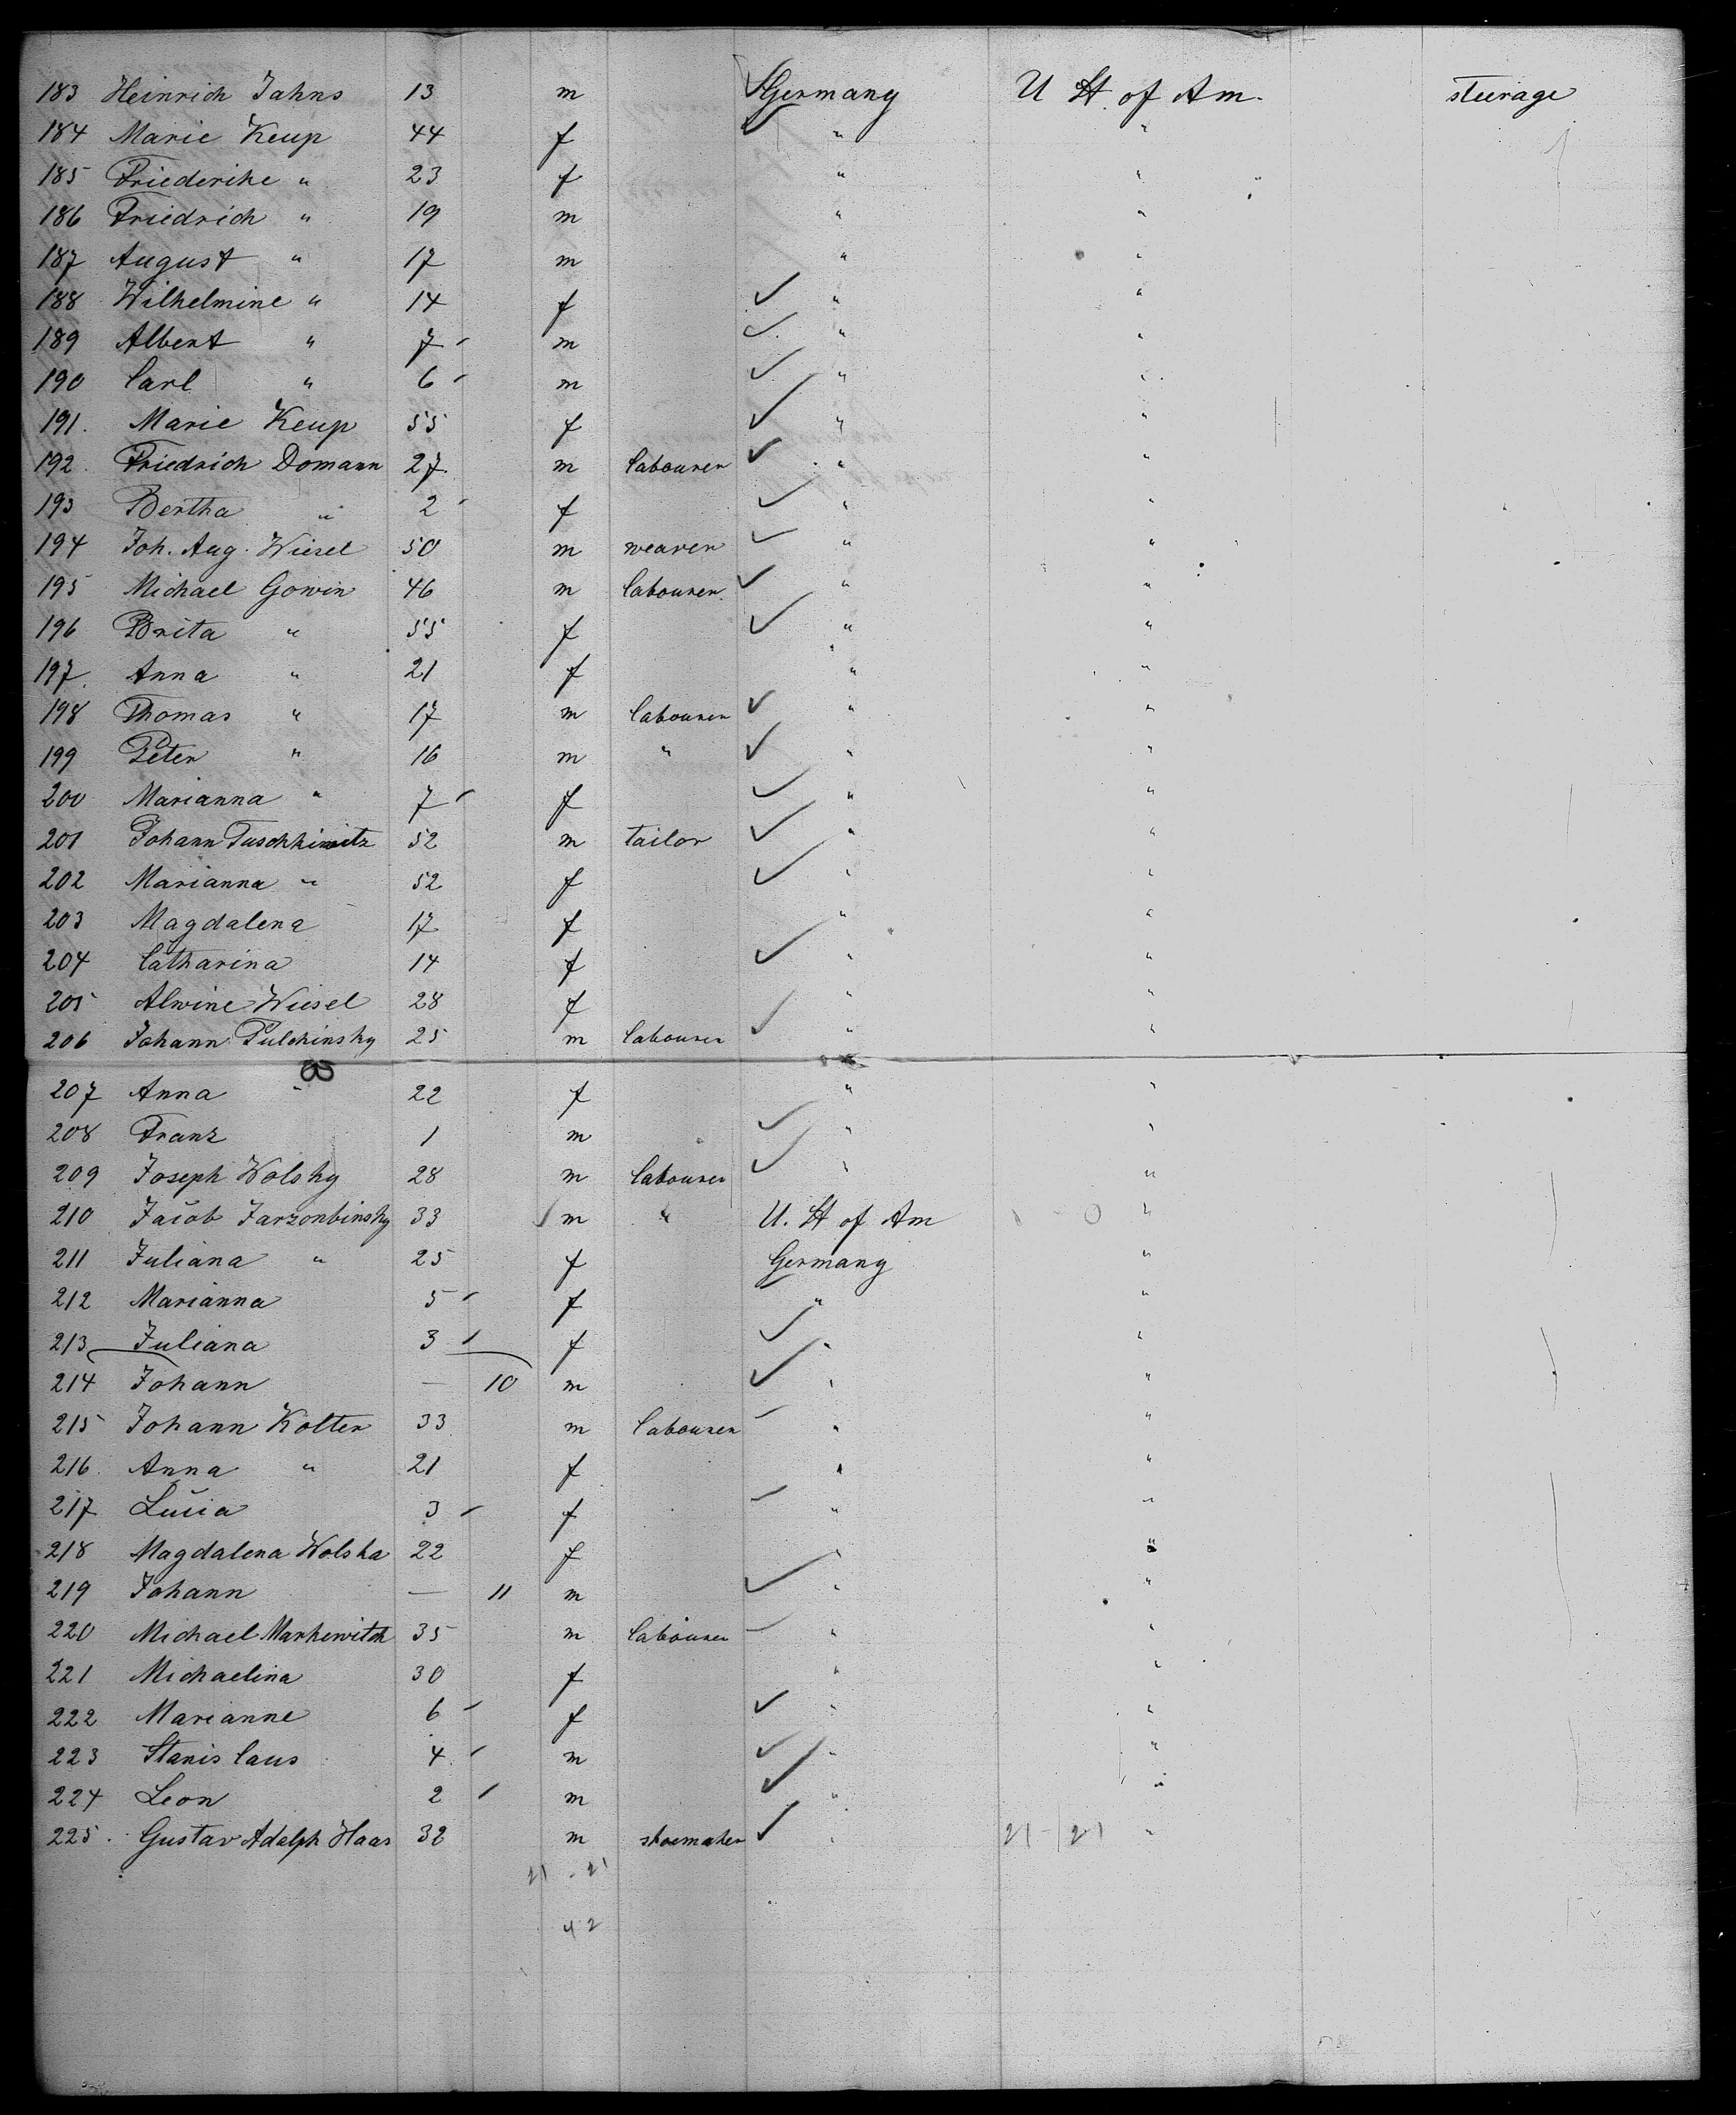 183 Heinrich Jahns 13 m Germany U St. of Am. steerage
184 Marie Keup 44 f " "
185 Friederike " 23 f " "
186 Friedrich " 19 m " "
187 August " 17 m " "
188 Wilhelmine " 14 f " "
189 Albert " 7 m " "
190 Carl " 6 m " "
191. Marie Keup 55 f " "
192. Friedrich Domann 27 m labourer " "
193 Bertha " 2 f " "
194 Joh. Aug. Wiesel 50 m weaver " "
195 Michael Gowin 46 m labourer " "
196 Brita " 55 f " "
197. Anna " 21 f " "
198 Thomas " 17 m labourer " "
199 Peter " 16 m " " "
200 Marianna " 7 f " "
201 Johann Tuschkiwitz 52 m tailor " "
202 Marianna " 52 f " "
203 Magdalena 17 f " "
204 Catharina 14 f " "
205 Alwine Wiesel 28 f " "
206 Johann Pulchinsky 25 m labourer " "
8
207 Anna " 22 f " "
208 Franz 1 m " "
209 Joseph Wolsky 28 m labourer " "
210 Jacob Jarzonbinsky 33 m " U. St of Am "
211 Juliana " 25 f Germany "
212 Marianna 5 f " "
213 Juliana 3 f " "
214 Johann — 10 m " "
215 Johann Kolter 33 m labourer " "
216. Anna " 21 f " "
217 Lucia 3 f " "
218 Magdalena Wolska 22 f " "
219 Johann — 11 m " "
220 Michael Markewitch 35 m labourer " "
221 Michaelina 30 f " "
222 Marianne 6 f " "
223 Stanislaus 4 m " "
224 Leon 2 m " "
225. Gustav Adolph Haas 32 m shoemaker " 21-21 "
21 - 21
42